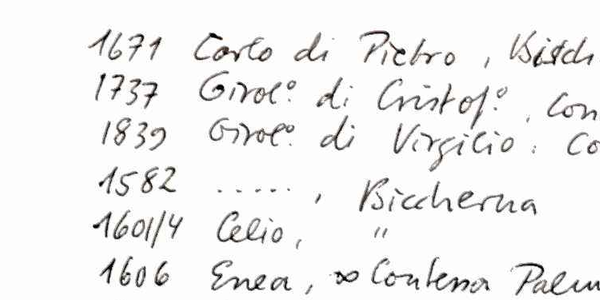 1671 Carlo di Pietro,
1737 Girol.º di Cristof.º, Con
1839 Girol.º di Virgilio. Co
1582 ....., Biccherna
1601/4 Celio, "
1606 Enea, ∞ Contessa Palm